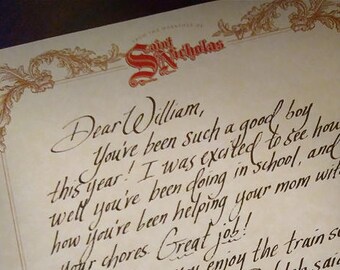 FROM THE WORKSHOP OF
Saint
Nicholas
Dear William,
You've been such a good boy
this year! I was excited to see how
well you've been doing in school, and
how you've been helping your mom with
your chores. Great job!
enjoy the train
said